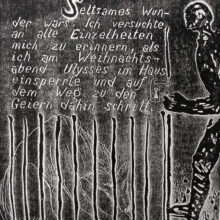 seltsames Wun-
der war's. Ich versuchte,
an alle Einzelheiten
mich zu erinnern, als
ich am Weihnachts-
abend Ulysses im Haus
einsperrte und auf
dem Weg zu den
Geiern dahin schritt.